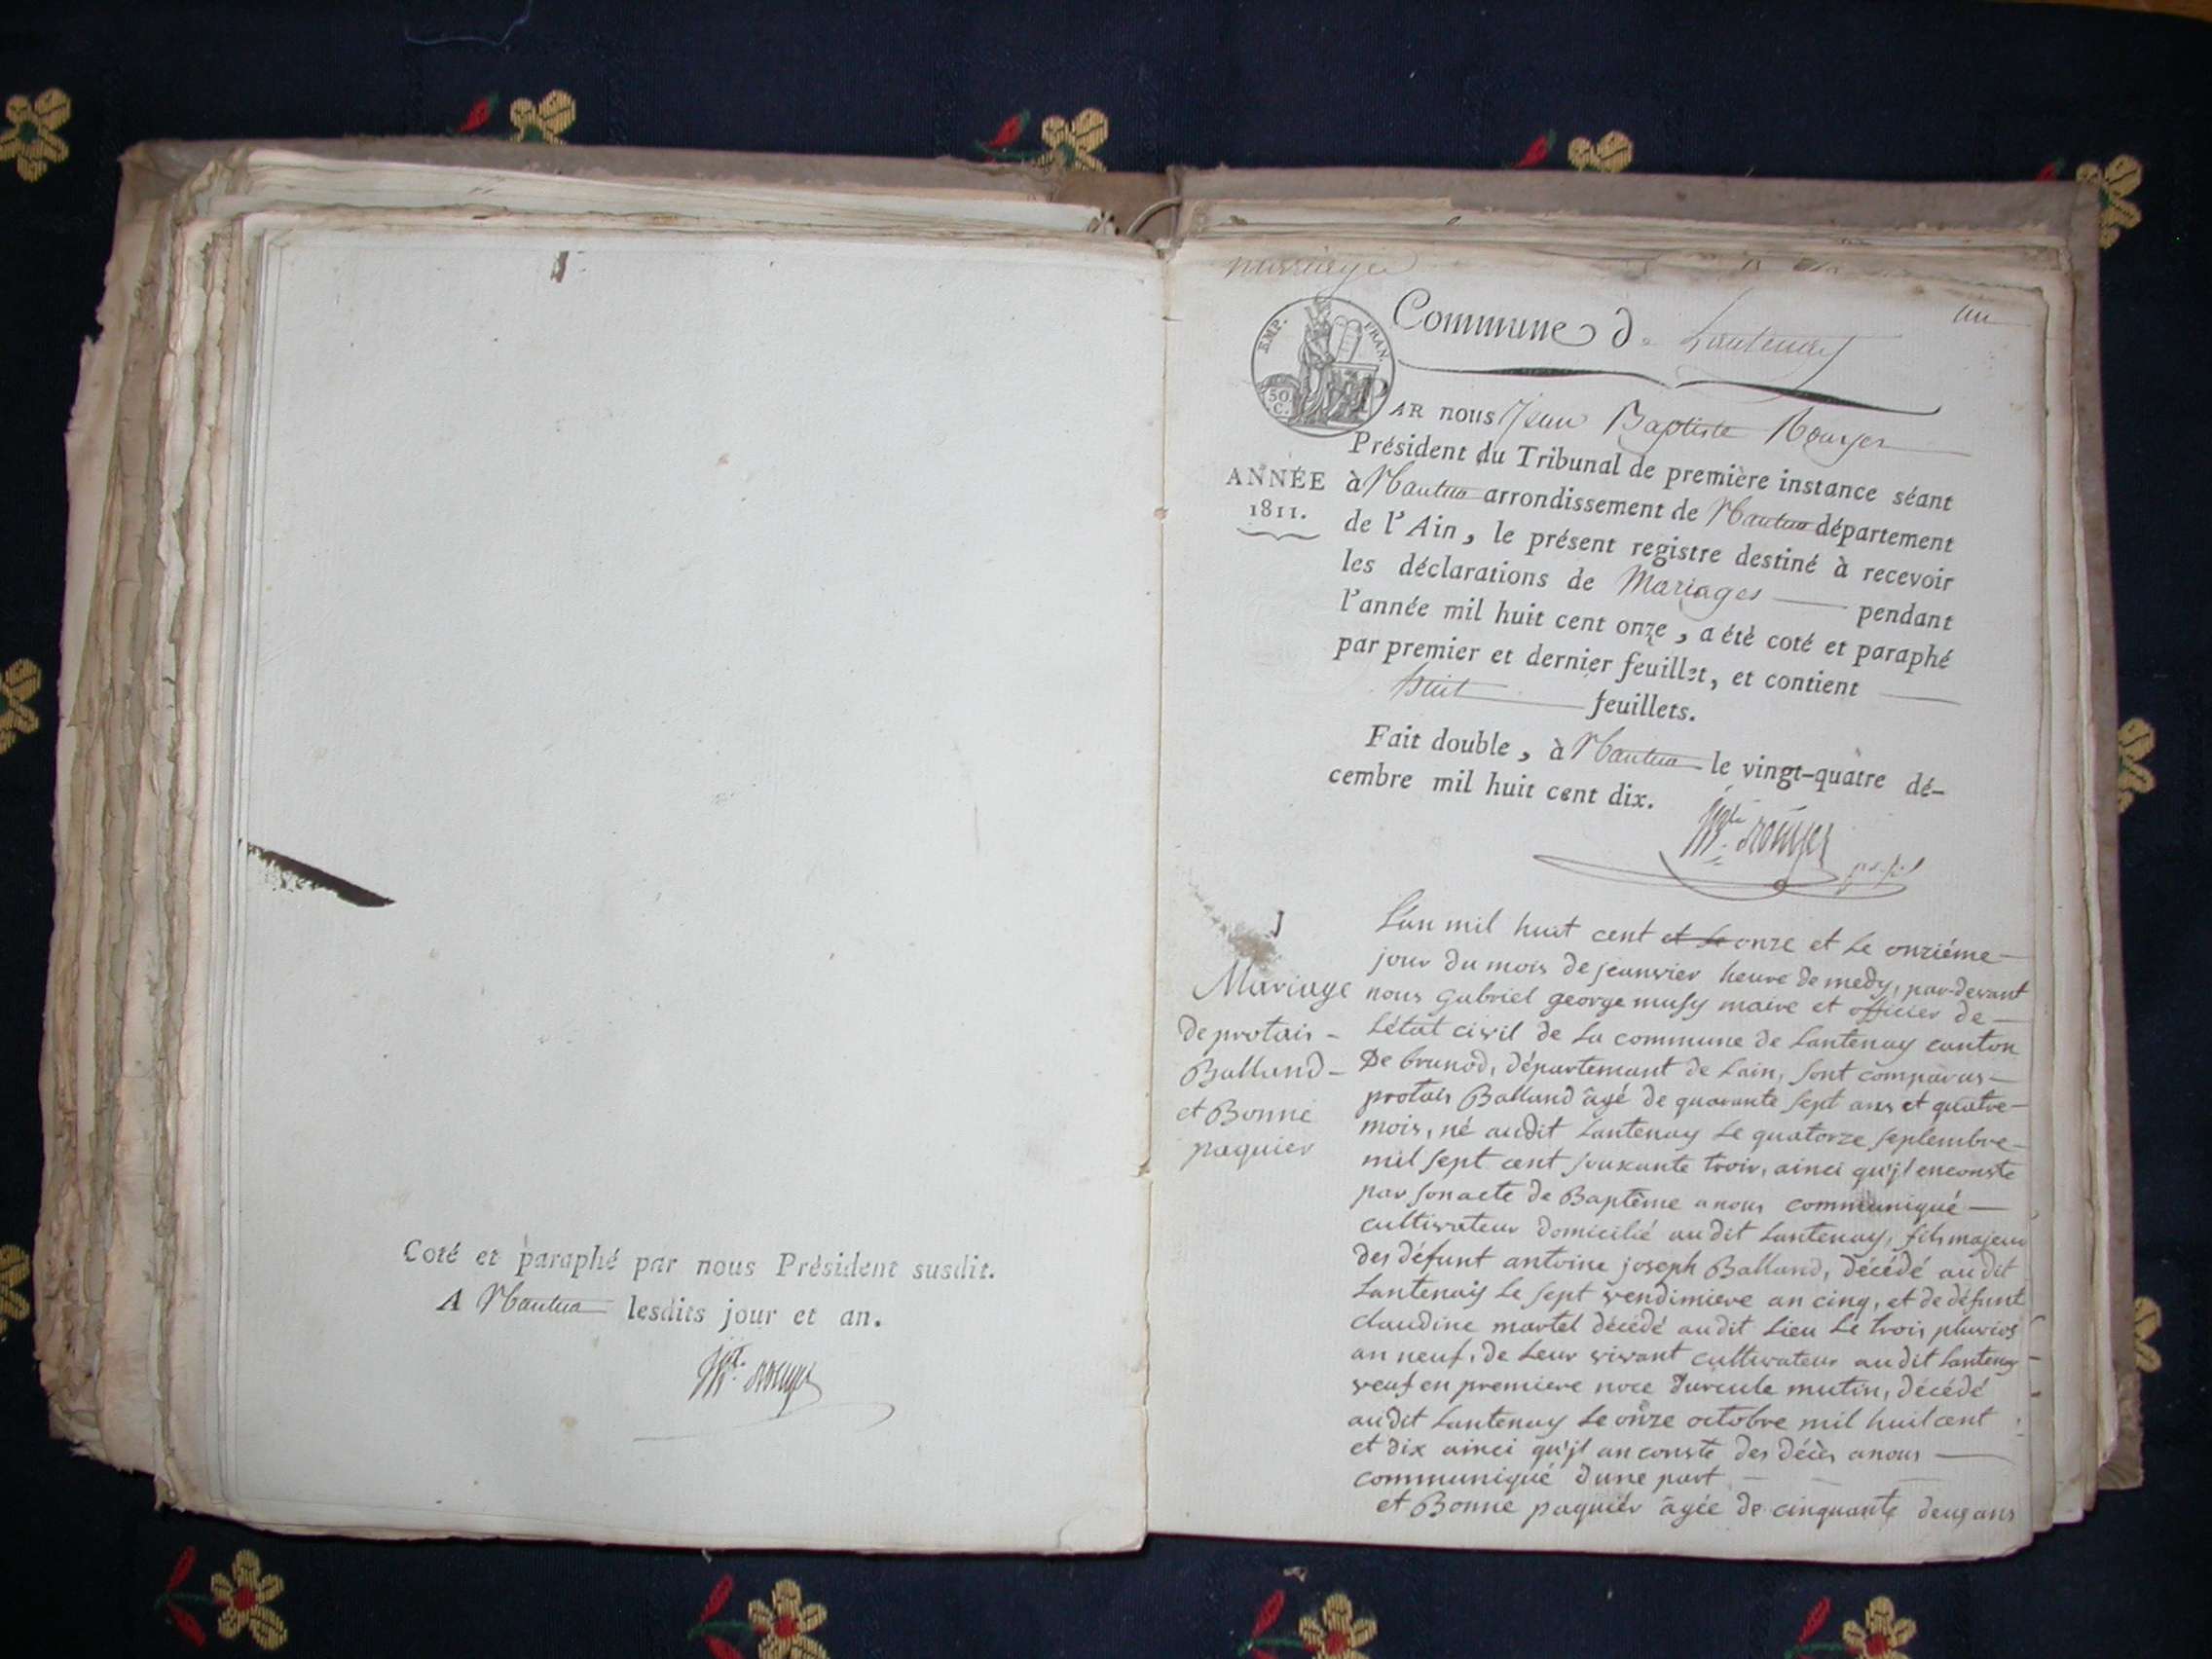 Coté et paraphé par nous Président susdit.
A Nantua lesdits jour et an.
mariage
Commune de Lantenay
un
EMP. FRAN.
50 C.
PAR nous Jean Baptiste Rouyer
Président du Tribunal de première instance séant
ANNÉE
1811.
à Nantua arrondissement de Nantua département
de l'Ain, le présent registre destiné à recevoir
les déclarations de Mariages pendant
l'année mil huit cent onze, a été coté et paraphé
par premier et dernier feuillet, et contient
huit feuillets.
Fait double, à Nantua le vingt-quatre dé-
cembre mil huit cent dix.
Jn. Bte. Rouyer
1
Mariage
de protais -
Balland -
et Bonne
paquier
L'an mil huit cent et Le onze et Le onziéme
jour du mois de jeanvier heure de medy, par-devant
nous gabriel george musy maire et officier de
L'état civil de La commune de Lantenay canton
De brunod, département de Lain, sont comparus
protais Balland âgé de quarante sept ans et quatre
mois, né audit Lantenay Le quatorze septembre
mil sept cent souxante trois, ainci qu'jl enconste
par son acte de Baptême a nous communiqué
cultivateur domicilié audit Lantenay, fils majeur
des défunt antoine joseph Balland, décédé audit
Lantenay Le sept vendimiere an cinq, et de défunt
claudine martel décédé audit Lieu Le trois pluvios
an neuf, de Leur vivant cultivateur audit Lantenay
veuf en premiere noce durcule mutin, décédé
audit Lantenay Le onze octobre mil huit cent
et dix ainci qu'jl an conste des décès a nous
communiqué dune part
et Bonne paquiér âgée de cinquante deux ans